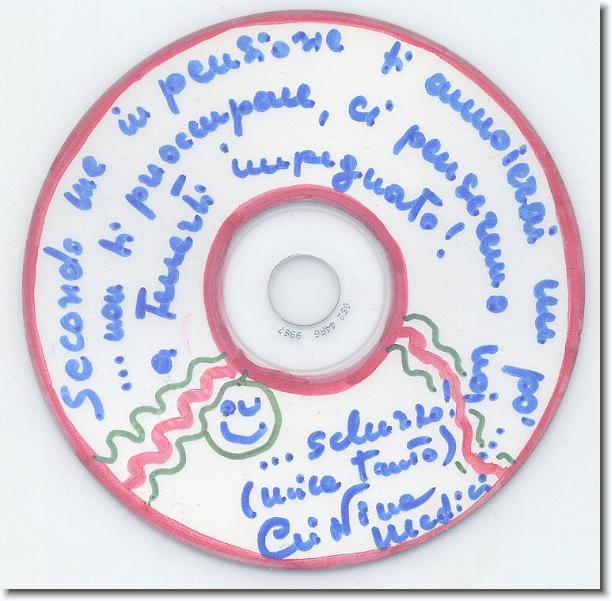 Secondo me in pensione ti annoierai un po'...
...non ti preoccupare, ci penseremo noi
a Tenerti impegnato!
...scherzo!
(mica tanto)
Cristina
Medici
052 44R6 9967